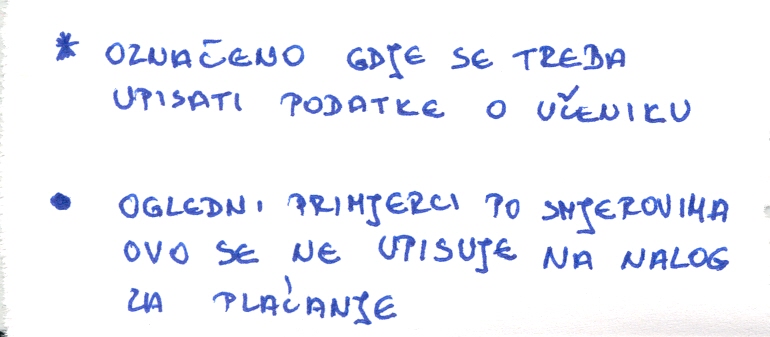 * OZNAČENO GDJE SE TREBA
UPISATI PODATKE O UČENIKU
• OGLEDNI PRIMJERCI PO SMJEROVIMA
OVO SE NE UPISUJE NA NALOG
ZA PLAĆANJE